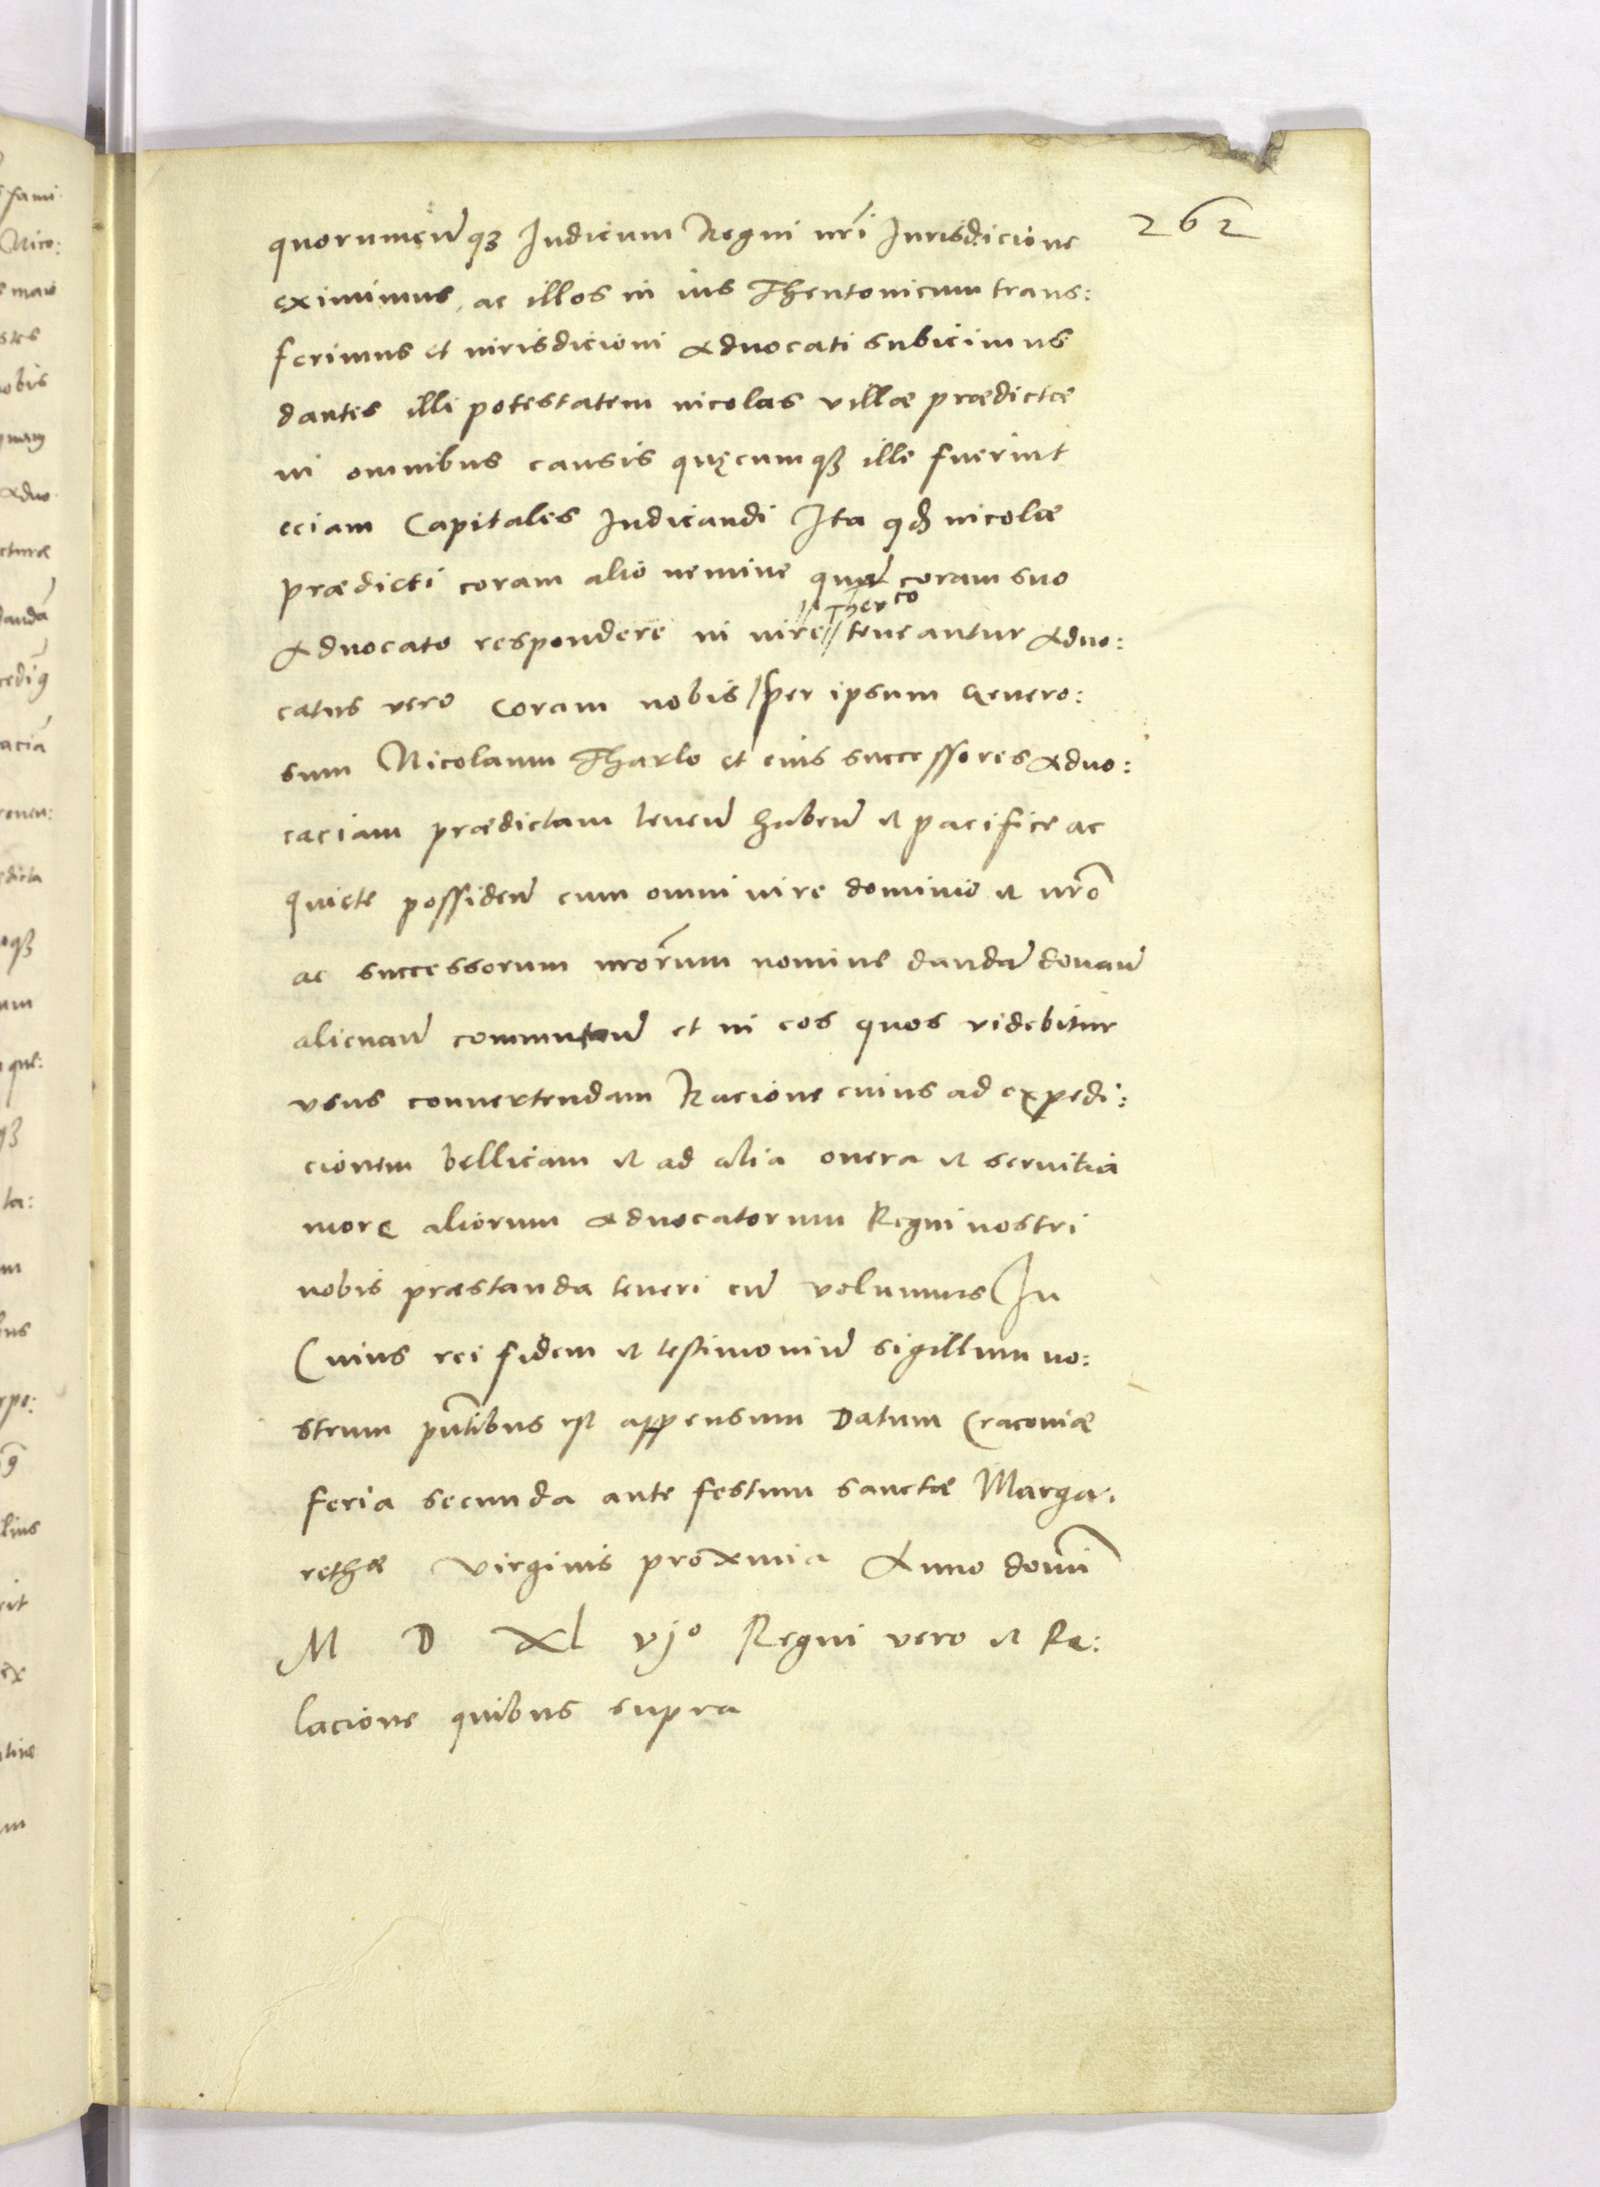 262
quorumcũqȝ Iudicum Regni nr̃i Iurisdicione
eximimus, ac illos in ius Theutonicum trans:
ferimus et iurisdicioni Aduocati subicimus
dantes illi potestatem incolas villæ prædictæ
in omnibus causis quęcumqȝ ille fuerint
eciam Capitales Iudicandi Ita qđ incolæ
prædicti coram alio nemine quã coram suo
Ther co
Aduocato respondere in iure // teneantur Aduo:
catus vero coram nobis / per ipsum Genero:
sum Nicolaum Tharlo et eius successores Aduo:
caciam prædictam tenen̄ haben̄ et pacifice ac
quiete possiden̄ cum omni iure dominio et nr̃o
ac successorum nr̃orum nomine dandã donan̄
alienan̄ commutan̄ et in eos quos videbitur
vsus conuertendam Racione cuius ad expedi:
cionem bellicam et ad alia onera et seruitia
more aliorum Aduocatorum Regni nostri
nobis præstanda teneri eũ volumus In
Cuius rei fidem et testimoniũ sigillum no:
strum pñtibus est appensum Datum Cracouiæ
feria secunda ante festum sanctæ Marga:
rethæ Virginis proxima Anno domi
M D Xl vjo Regni vero et Re:
lacione quibus supra